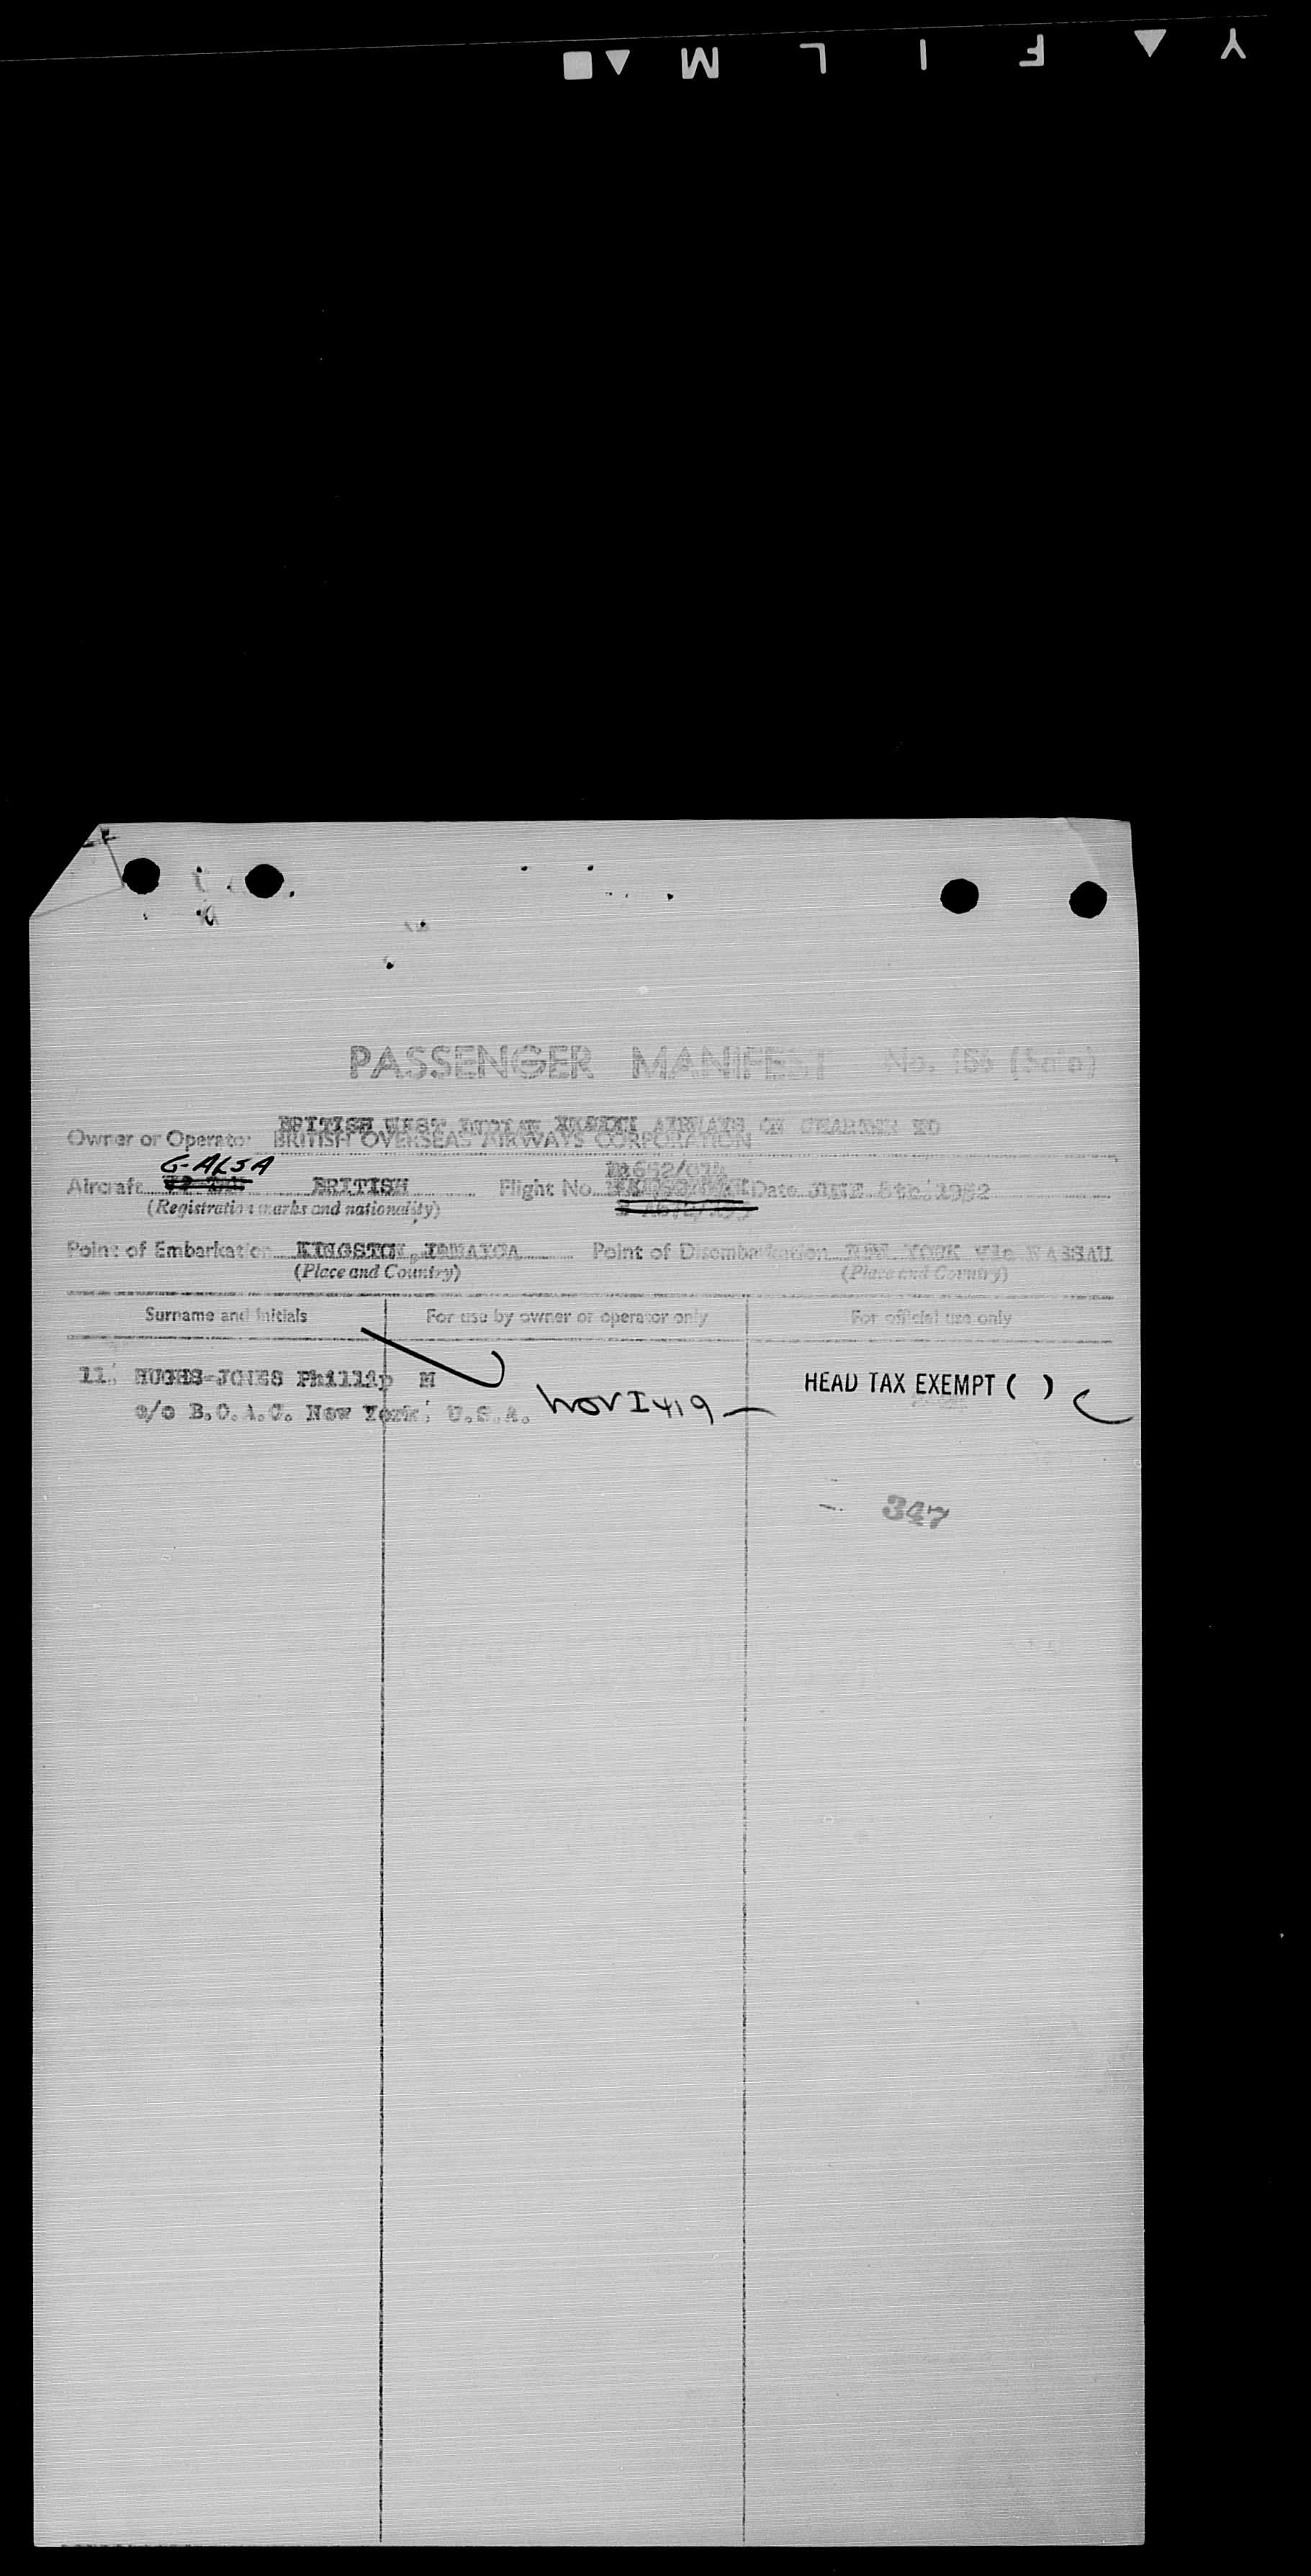 FAMILY
PASSENGER MANIFEST No. 156 (Solo)
BRITISH WEST INDIAN AIRWAYS ON CHARTER TO
Owner or Operator BRITISH OVERSEAS AIRWAYS CORPORATION
G-ALSA
Aircraft BRITISH Flight No. Date JUNE 8th. 1952
(Registration marks and nationality)
Point of Embarkation KINGSTON, JAMAICA Point of Disembarkation NEW YORK via NASSAU
(Place and Country) (Place and Country)
Surname and initials For use by owner or operator only For official use only
11. HUGHS-JONES Phillip M HEAD TAX EXEMPT ( )
c/o B.O.A.C. New York, U.S.A.
347